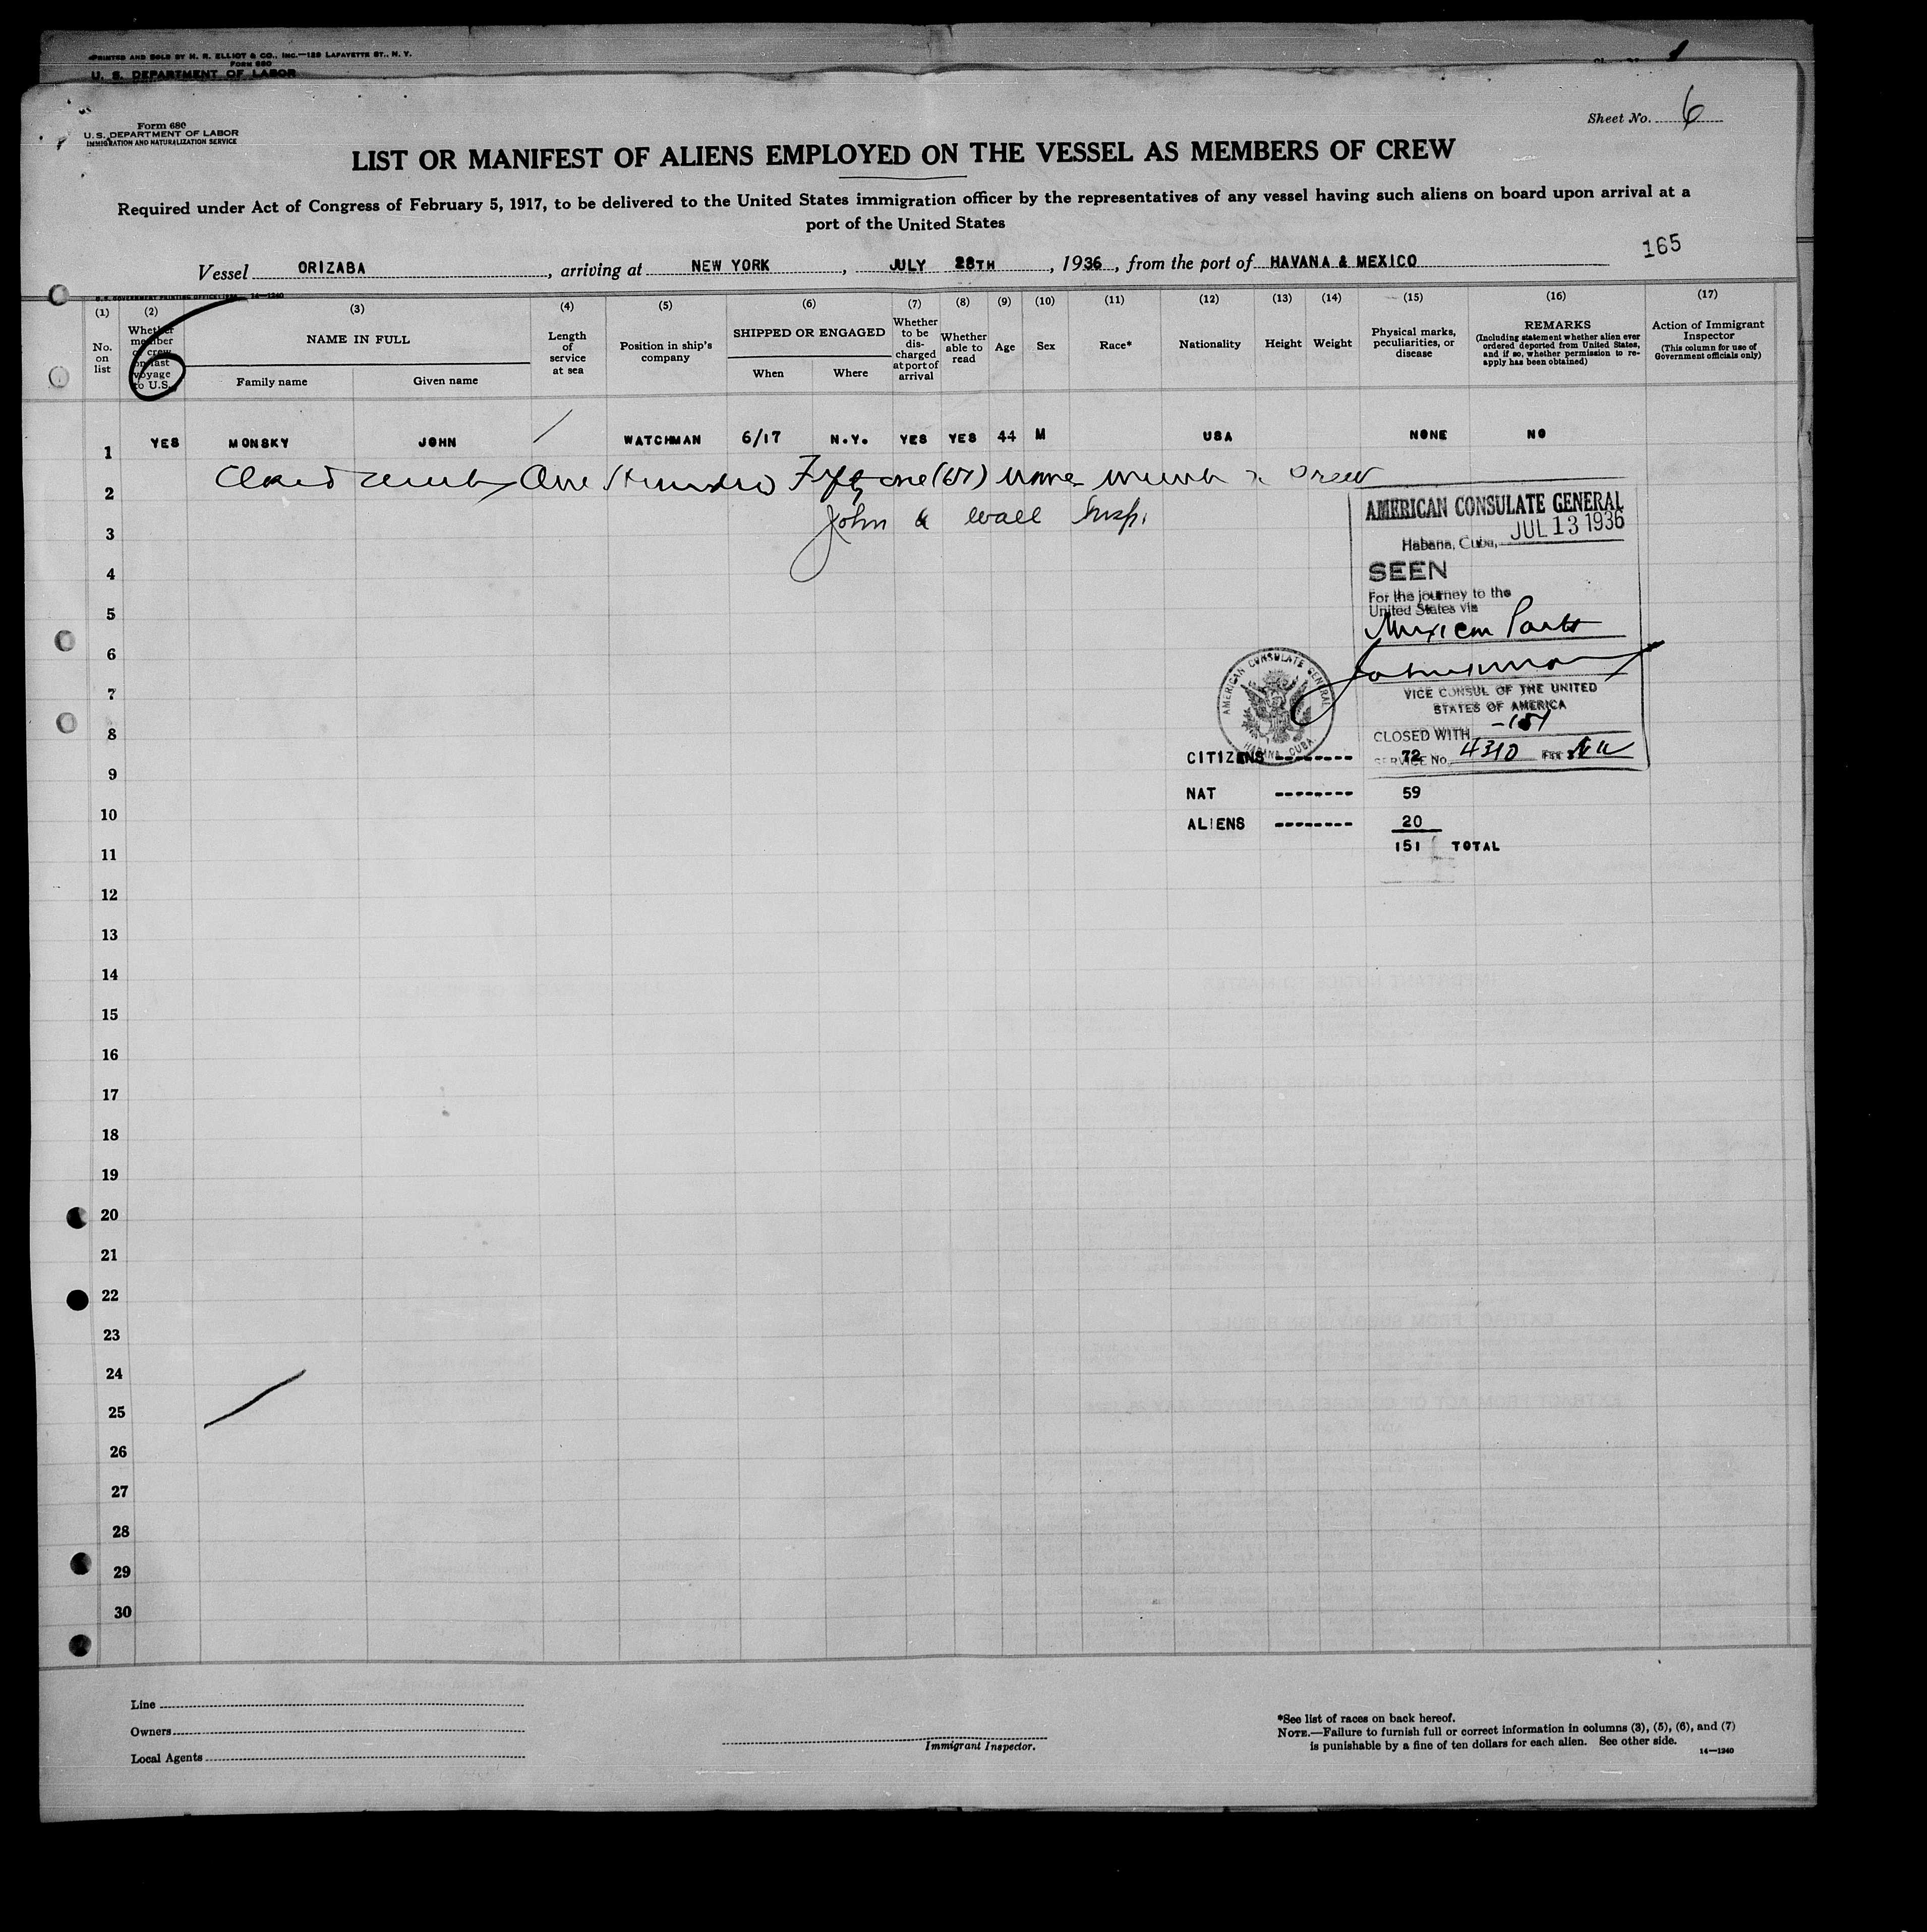 PRINTED AND SOLD BY H. R. ELLIOT & CO., INC.—129 LAFAYETTE ST., N. Y.
FORM 680
U. S. DEPARTMENT OF LABOR
Form 680
U.S. DEPARTMENT OF LABOR
IMMIGRATION AND NATURALIZATION SERVICE
Sheet No. 6
LIST OR MANIFEST OF ALIENS EMPLOYED ON THE VESSEL AS MEMBERS OF CREW
Required under Act of Congress of February 5, 1917, to be delivered to the United States immigration officer by the representatives of any vessel having such aliens on board upon arrival at a
port of the United States
165
Vessel ORIZABA, arriving at NEW YORK, JULY 28TH, 1936, from the port of HAVANA & MEXICO
U.S. GOVERNMENT PRINTING OFFICE 14—1240
6
(1) No. on list
(2) Whether member of crew on last voyage to U.S.
(3) NAME IN FULL Family name Given name
(4) Length of service at sea
(5) Position in ship's company
(6) SHIPPED OR ENGAGED When Where
(7) Whether to be discharged at port of arrival
(8) Whether able to read
(9) Age
(10) Sex
(11) Race*
(12) Nationality
(13) Height
(14) Weight
(15) Physical marks, peculiarities, or disease
(16) REMARKS (Including statement whether alien ever ordered deported from United States, and if so, whether permission to reapply has been obtained)
(17) Action of Immigrant Inspector (This column for use of Government officials only)
1 YES MONSKY JOHN WATCHMAN 6/17 N.Y. YES YES 44 M USA NONE NO
2 One Hundred Fifty one (151) crew
3 John Wall Insp.
4
5
6
7
8
9
10
11
12
13
14
15
16
17
18
19
20
21
22
23
24
25
26
27
28
29
30
AMERICAN CONSULATE GENERAL
Habana, Cuba, JUL 13 1936
SEEN
For the journey to the
United States via
Mexican Ports
VICE CONSUL OF THE UNITED
STATES OF AMERICA
CLOSED WITH -151
SERVICE No. 4310
AMERICAN CONSULATE GENERAL
HABANA, CUBA
CITIZENS -------- 72
NAT -------- 59
ALIENS -------- 20
151 TOTAL
Line
Owners
Local Agents
Immigrant Inspector.
*See list of races on back hereof.
NOTE.—Failure to furnish full or correct information in columns (3), (5), (6), and (7)
is punishable by a fine of ten dollars for each alien. See other side.
14—1240